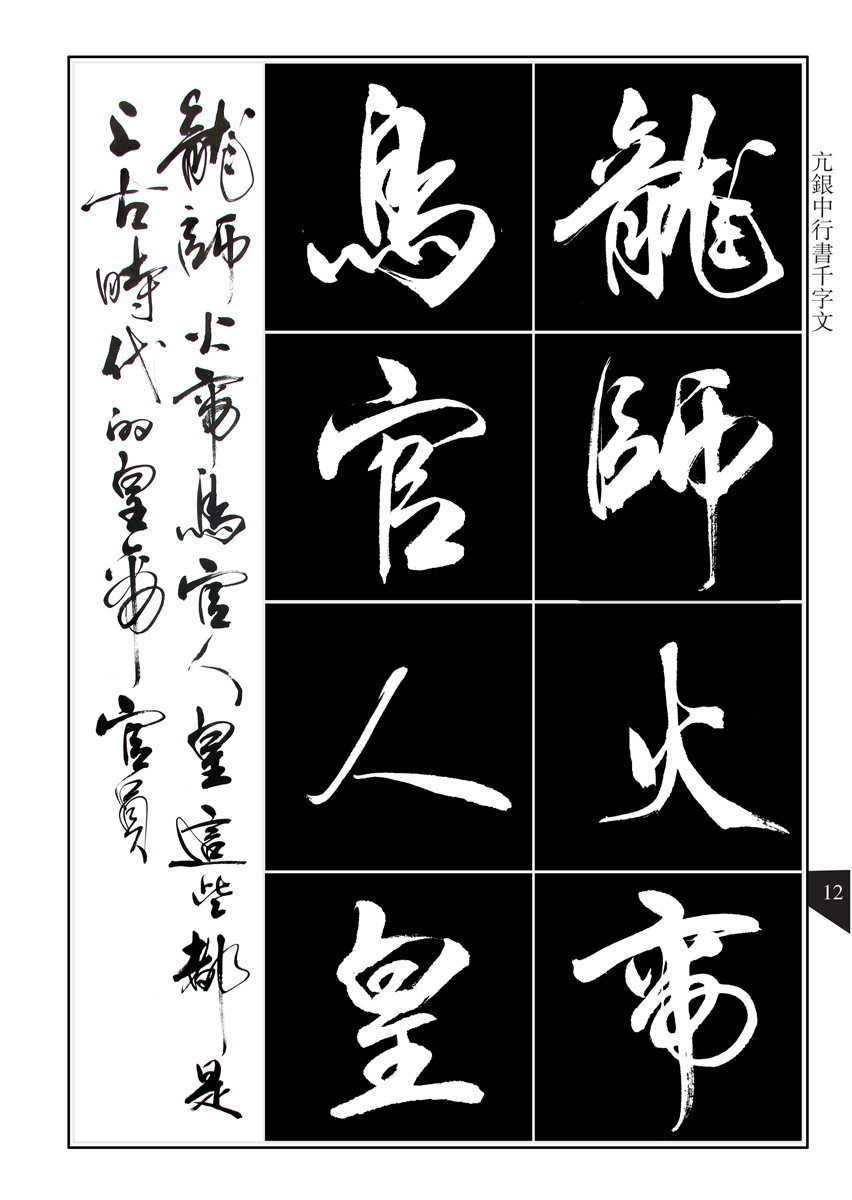 亢銀中行書千字文
龍師火帝
鳥官人皇
龍師火帝鳥官人皇這些都是
上古時代的皇帝官員
12